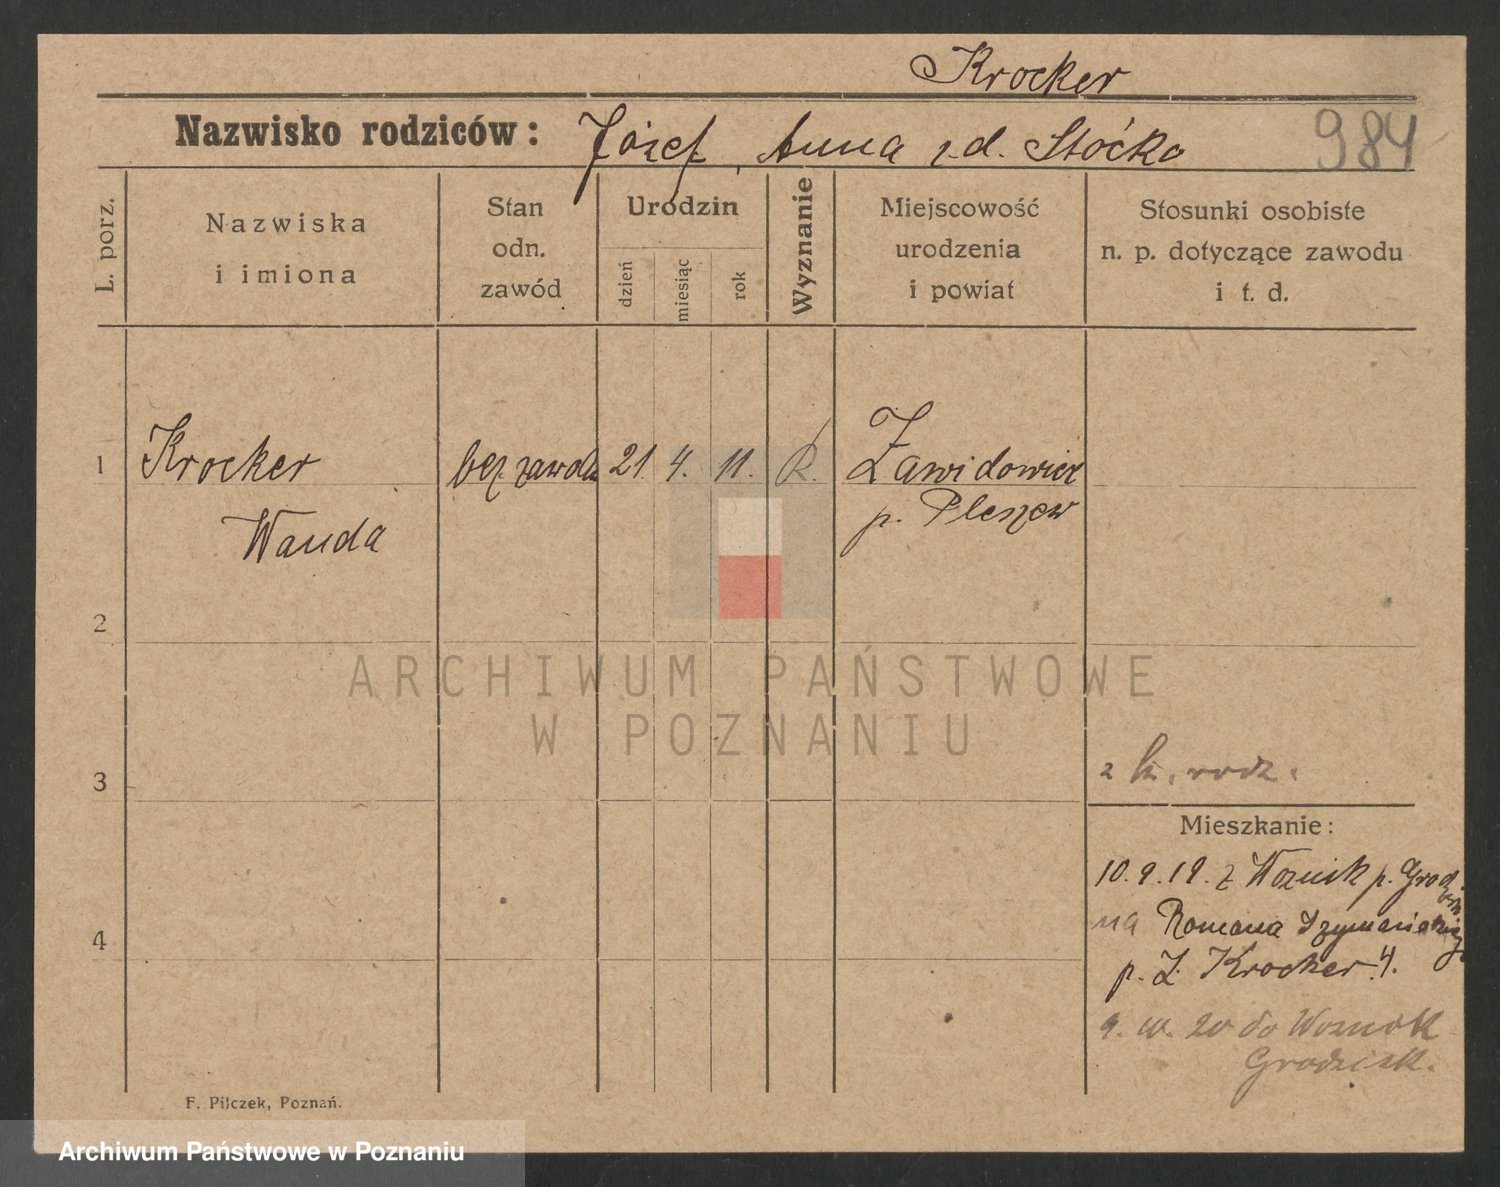 Krocker
Nazwisko rodziców: Józef, Anna z.d. Stoćko
984
L. porz.
Nazwiska
i imiona
Stan
odn.
zawód
Urodzin
dzień
miesiąc
rok
Wyznanie
Miejscowość
urodzenia
i powiat
Stosunki osobiste
n. p. dotyczące zawodu
i t. d.
1
Krocker
Wanda
bez zawodu
21. 4. 11.
R.
Zawidowice
p. Pleszew
2
3
4
z k. rodz.
Mieszkanie:
10. 9. 19. z Woznik p. Grodzisk
na Romana Szymańskiego
p. Z. Krocker 4.
9. 20 do Woznik
Grodzisk.
F. Pilczek, Poznań.
ARCHIWUM PAŃSTWOWE
W POZNANIU
Archiwum Państwowe w Poznaniu